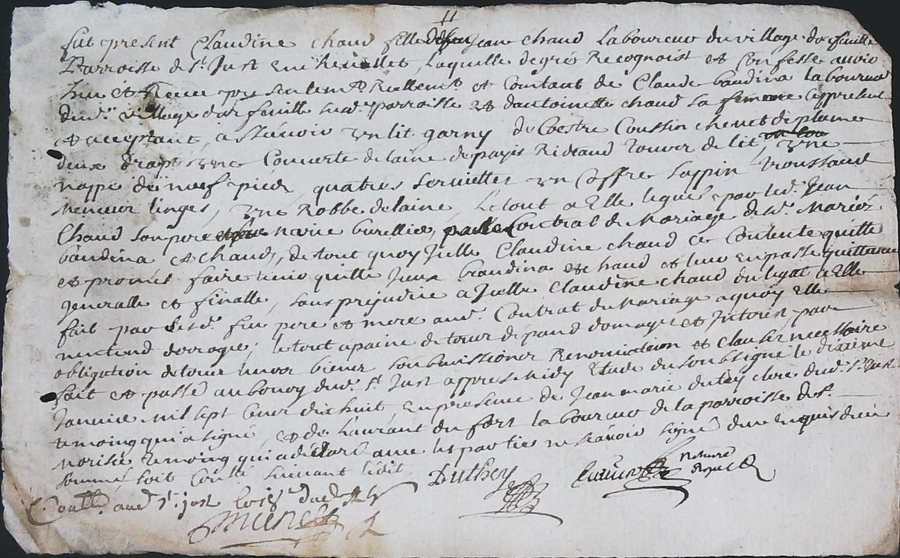 fut present Claudine chaud fille de feu Jean chaud Laboureur du village
Parroisse de St Just en chevallet, laquelle de gré Recognoist et Confesse avoir
heu et Receu presentement Reellement et Contant de Claude baudina laboureur
dud. village parroisse et dantoinette chaud sa femme cy present
et acceptant, a scavoir un lit garny de Coestre Coussin chevet de plume
deux draps une Couverte de laine de pays Rideaud tour de lit, une
nappe de neuf pied, quatres serviettes un Coffre sappin
meneur linges, une Robbe de laine, le tout a Elle legué par led. Jean
Chaud son pere marie Contrat de Mariage desd. Mariés
baudina et chaud, de tout quoy Jcelle Claudine chaud ce Contente quitte
et promet faire tenir quitte Jceux baudina et chaud et leur en passe quittance
generalle et finalle, sans prejudice a Jcelle Claudine chaud du legat a Elle
fait par sesd. feu pere et mere aud. Contrat de Mariage a quoy Elle
nentend deroger, le tout a paine de tous depand domages et Jnterest par
obligation de tous leurs biens soubmissions Renonciation et clauses necessaire
fait et passé au bourg dud. St Just appres midy Etude du soubsigné le dixieme
Janvier mil sept Cent dix huit, en presence de Jean marie duthey clerc dud. St Just
temoing qui a signé, et de Laurant du fort laboureur de la parroisse de St
temoing qui a declaré avec les parties ne scavoir signé de ce enquis
sommé soit Conllé suivant ledit
Duthey
notaire
Royal
Coallé aud St Just